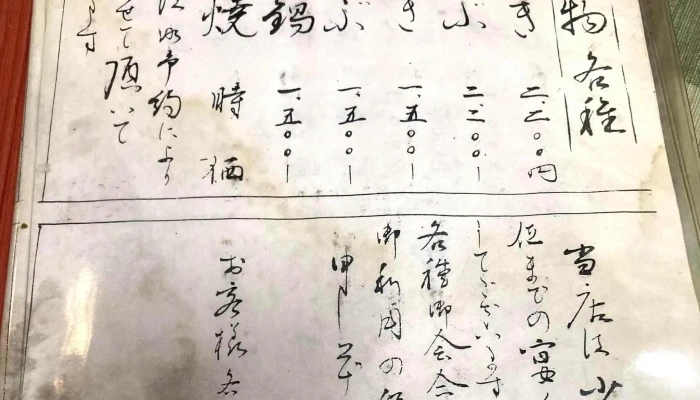 物各種
き 二、二〇〇円
ぶ 二、二〇〇ー
き 一、五〇〇ー
ぶ 一、五〇〇ー
鍋 一、五〇〇ー
焼 時価
予約により
せて頂いて
ます
当店は少
位までの宴
しております
各種御会合
御利用の
申し
お客様各